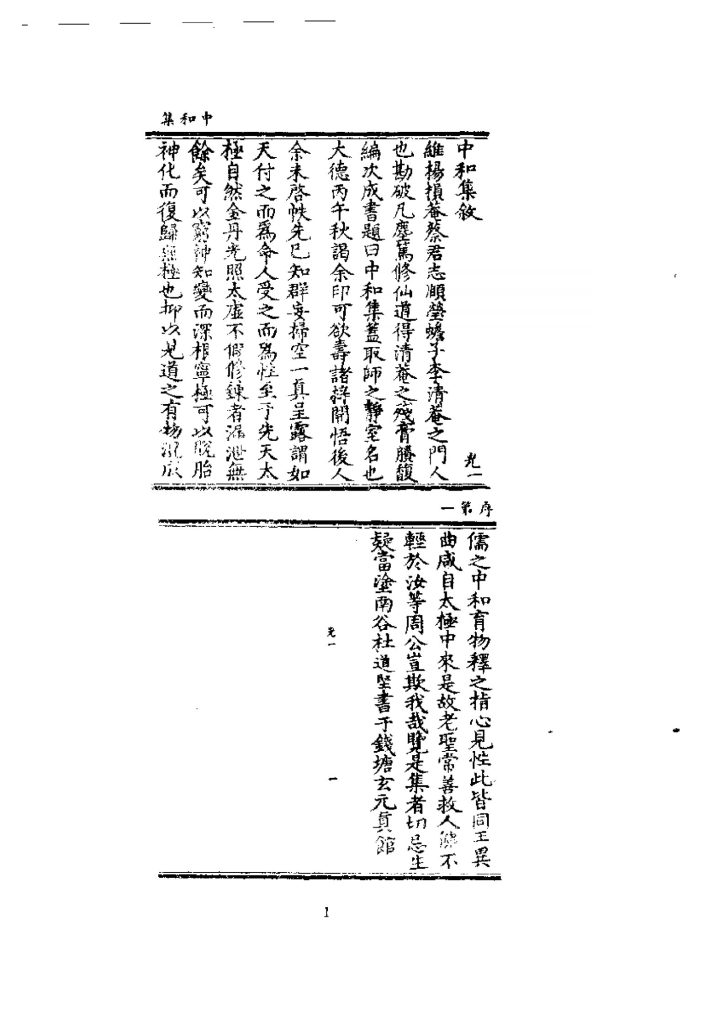 中和集
中和集敘
光一
維楊損菴蔡君志頤瑩蟾子李清菴之門人
也勘破凡塵篤修仙道得清菴之殘膏賸馥
編次成書題曰中和集蓋取師之靜室名也
大德丙午秋謁余印可欲壽諸梓開悟後人
余未啓帙先已知群妄掃空一真呈露謂如
天付之而爲命人受之而爲性至于先天太
極自然金丹光照太虛不假修鍊者漏泄無
餘矣可以窮神知變而深根寧極可以脫胎
神化而復歸無極也抑以見道之有物混成
序第一
儒之中和育物釋之指心見性此皆同工異
曲咸自太極中來是故老聖常善救人佛不
輕於汝等周公豈欺我哉覽是集者切忌生
疑當塗南谷杜道堅書于錢塘玄元真館
光一
一
1